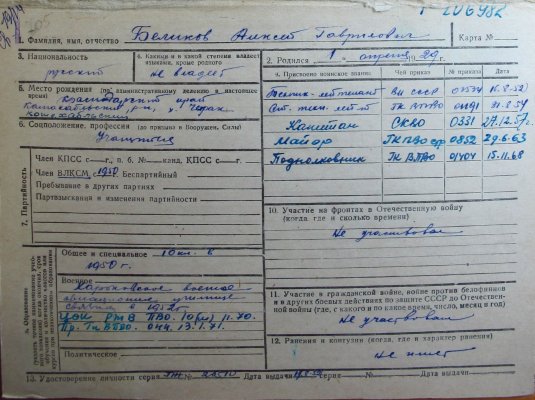 206982
1. Фамилия, имя, отчество Беликов Алексей Гаврилович Карта №
3. Национальность
русский
4. Каким и в какой степени владеет языком, кроме родного
не владеет
2. Родился 1 апреля 29 г.
5. Место рождения (по административному делению в настоящее время) Краснодарский край
6. Соцположение, профессия (до призыва в Вооружен. Силы)
Учащийся
7. Партийность
Член КПСС с — г., п. б. № — канд. КПСС с — г.
Член ВЛКСМ с 1950 Беспартийный
Пребывание в других партиях
Партвзыскания и изменения партийности
8. Образование
Общее и специальное 10 кл. в
1950 г.
Военное
Харьковское военное
авиационное училище
связи в 1952 г.
ПВО. 11.70.
Пр. Гк ВПВО. 044. 13.1.71.
Политическое
9. Присвоено воинское звание Чей приказ № приказа Дата
Техник-лейтенант ВМ СССР 01574
Ст. техн. лей-т ГК ВПВО
Капитан СКВО 0331 27.12.57г.
Майор 0852 29.6.63
Подполковник Гк ВПВО 01404 15.11.68
10. Участие на фронтах в Отечественную войну
(когда, где и сколько времени)
Не участвовал
11. Участие в гражданской войне, войне против белофиннов
и в других боевых действиях по защите СССР до Отечествен-
ной войны (где, с какого и по какое время, число, месяц и год)
Не участвовал
12. Ранения и контузии (когда, где и характер ранения)
Не имеет
13. Удостоверение личности серия № Дата выдачи серия — № Дата выдачи